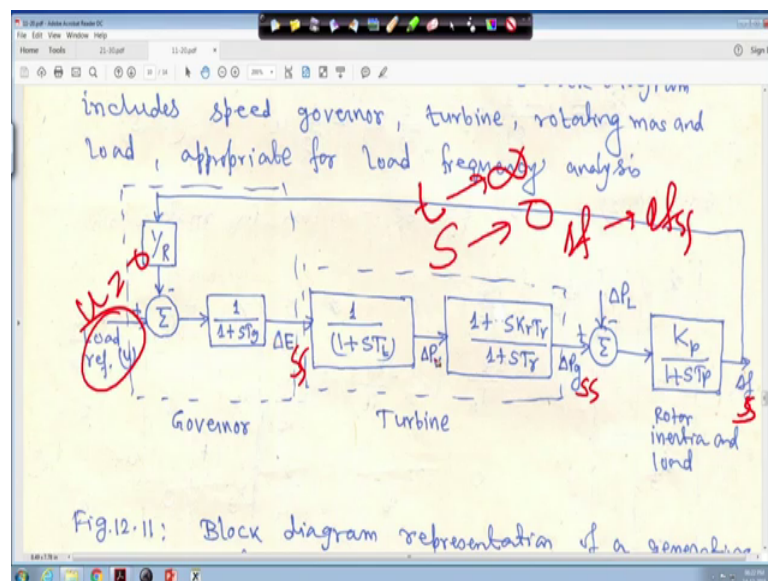 11-20.pdf - Adobe Acrobat Reader DC
File Edit View Window Help
Home Tools 21-30.pdf 11-20.pdf × Sign
includes speed governor, turbine, rotating mas and
load, appropriate for load frequency analysis
t → ∞
S → 0 Δf → Δfss
1/R
u=0
-
+ Σ 1 / 1+STg ΔE ss 1 / (1+STt) ΔPt 1+ SKrTr / 1+STr ΔPg ss + Σ - ΔPL Kp / 1+STp Δf ss
Load
ref. (u)
Governor
Turbine
Rotor
inertia and
load
Fig.12.11: Block diagram representation of a generating